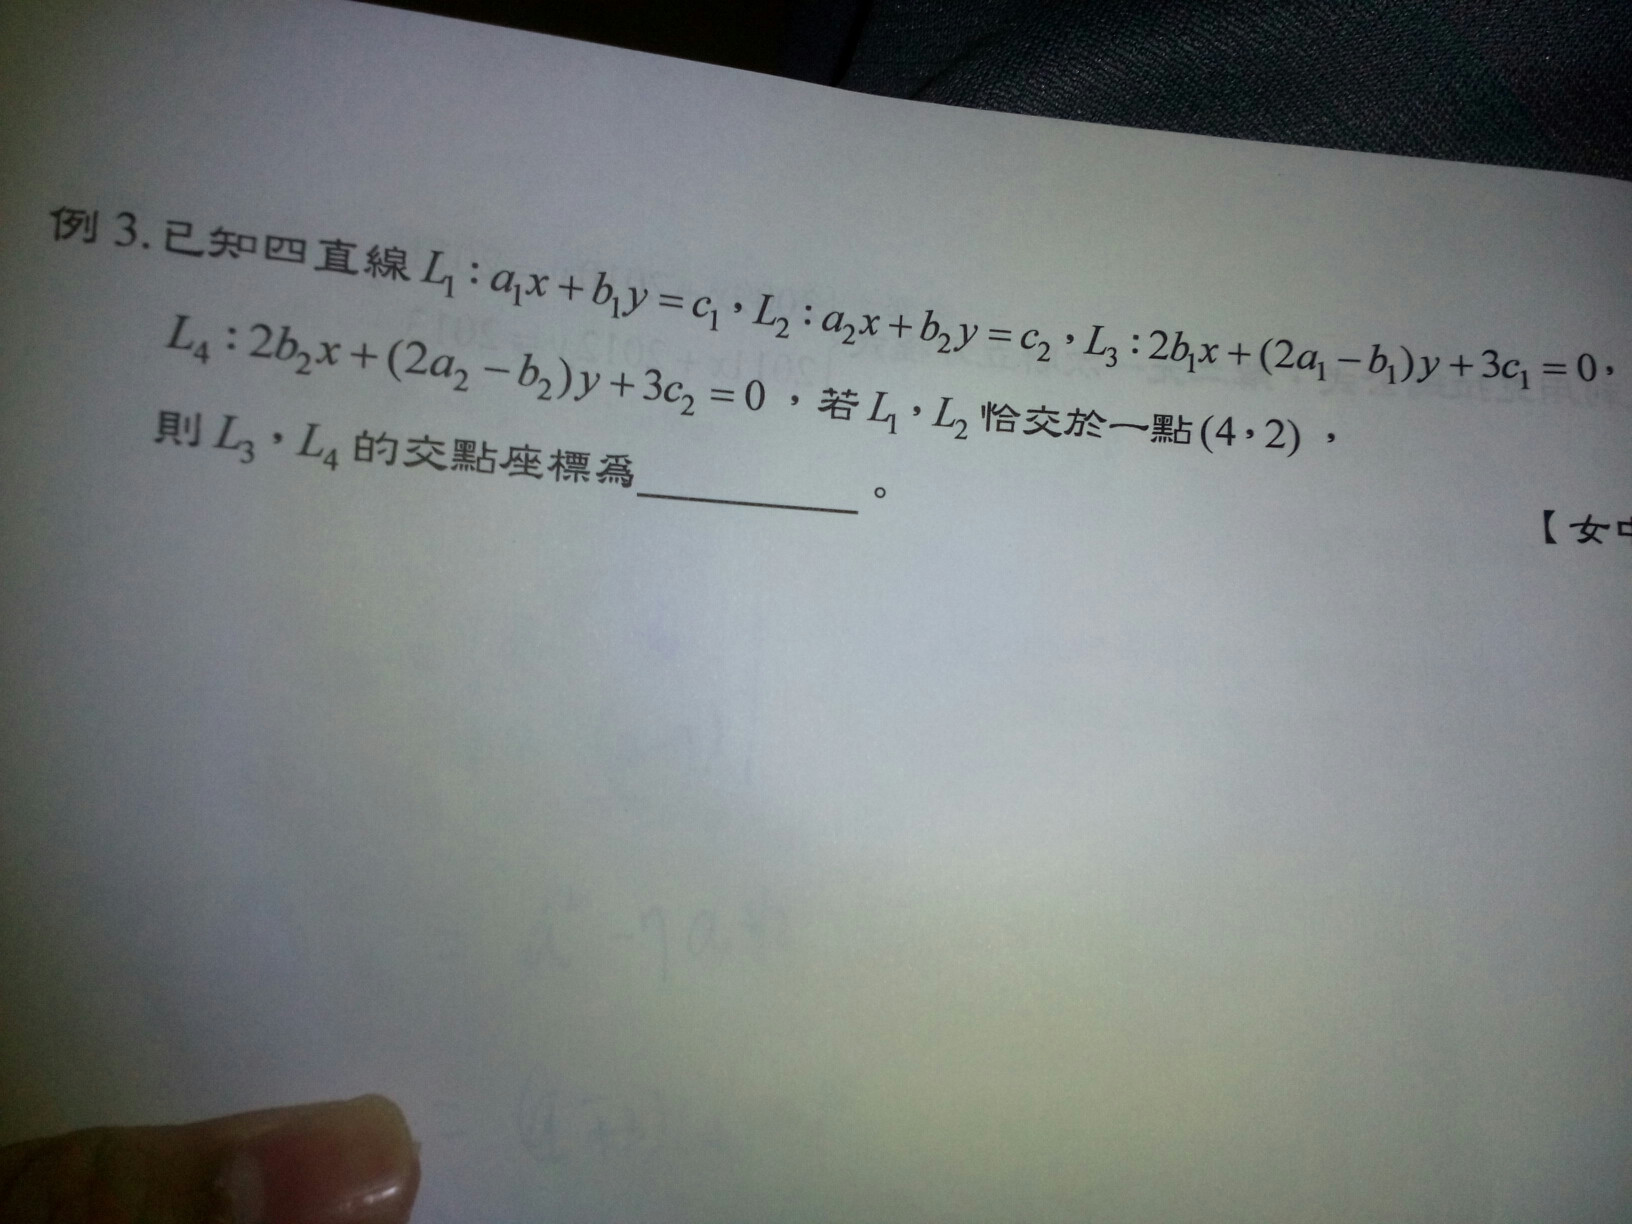 例 3. 已知四直線 L₁:a₁x+b₁y=c₁,L₂:a₂x+b₂y=c₂,L₃:2b₁x+(2a₁−b₁)y+3c₁=0,
L₄:2b₂x+(2a₂−b₂)y+3c₂=0,若 L₁,L₂ 恰交於一點(4,2),
則 L₃,L₄ 的交點座標為__________。
【女